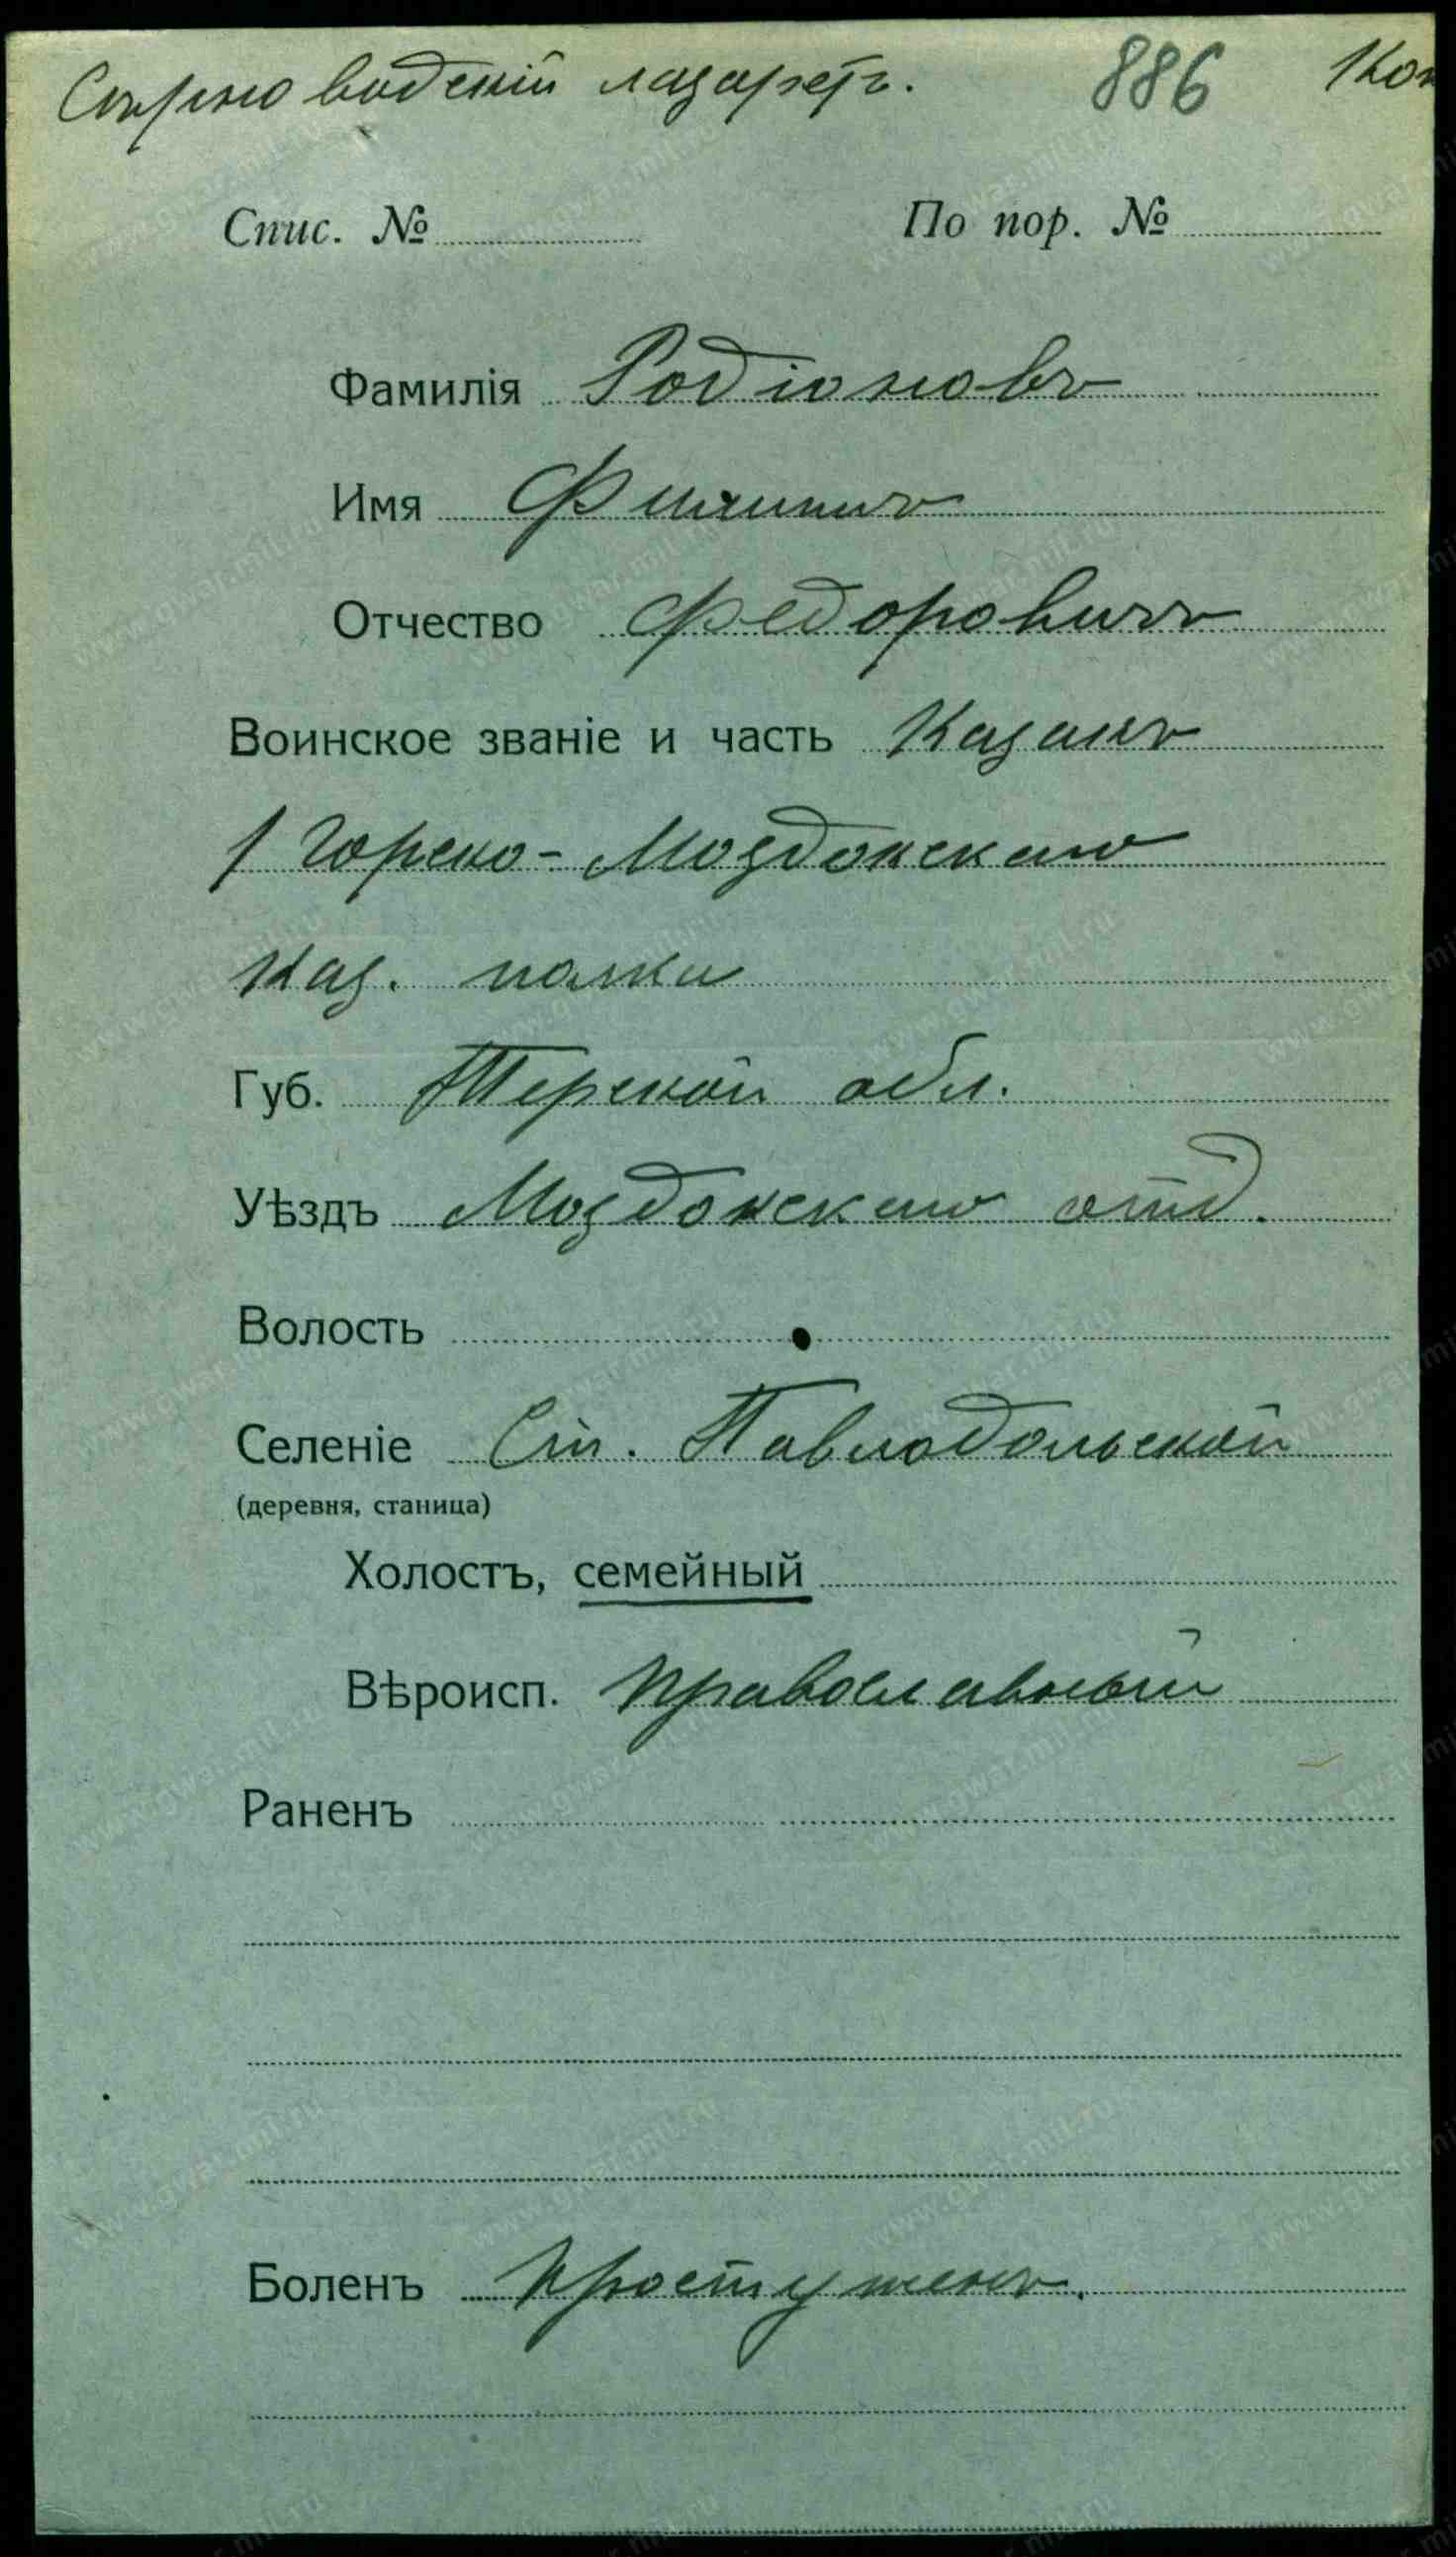 Сѣрноводскій лазаретъ. 886 Кон
Спис. № По пор. №
Фамилія Родіоновъ
Имя Филиппъ
Отчество Федоровичъ
Воинское званіе и часть Казакъ
1 Горско-Моздокскаго
Каз. полка
Губ. Терской обл.
Уѣздъ Моздокскаго отд.
Волость
Селеніе Ст. Павлодольской
(деревня, станица)
Холостъ, семейный
Вѣроисп. православный
Раненъ
Боленъ простуженъ.